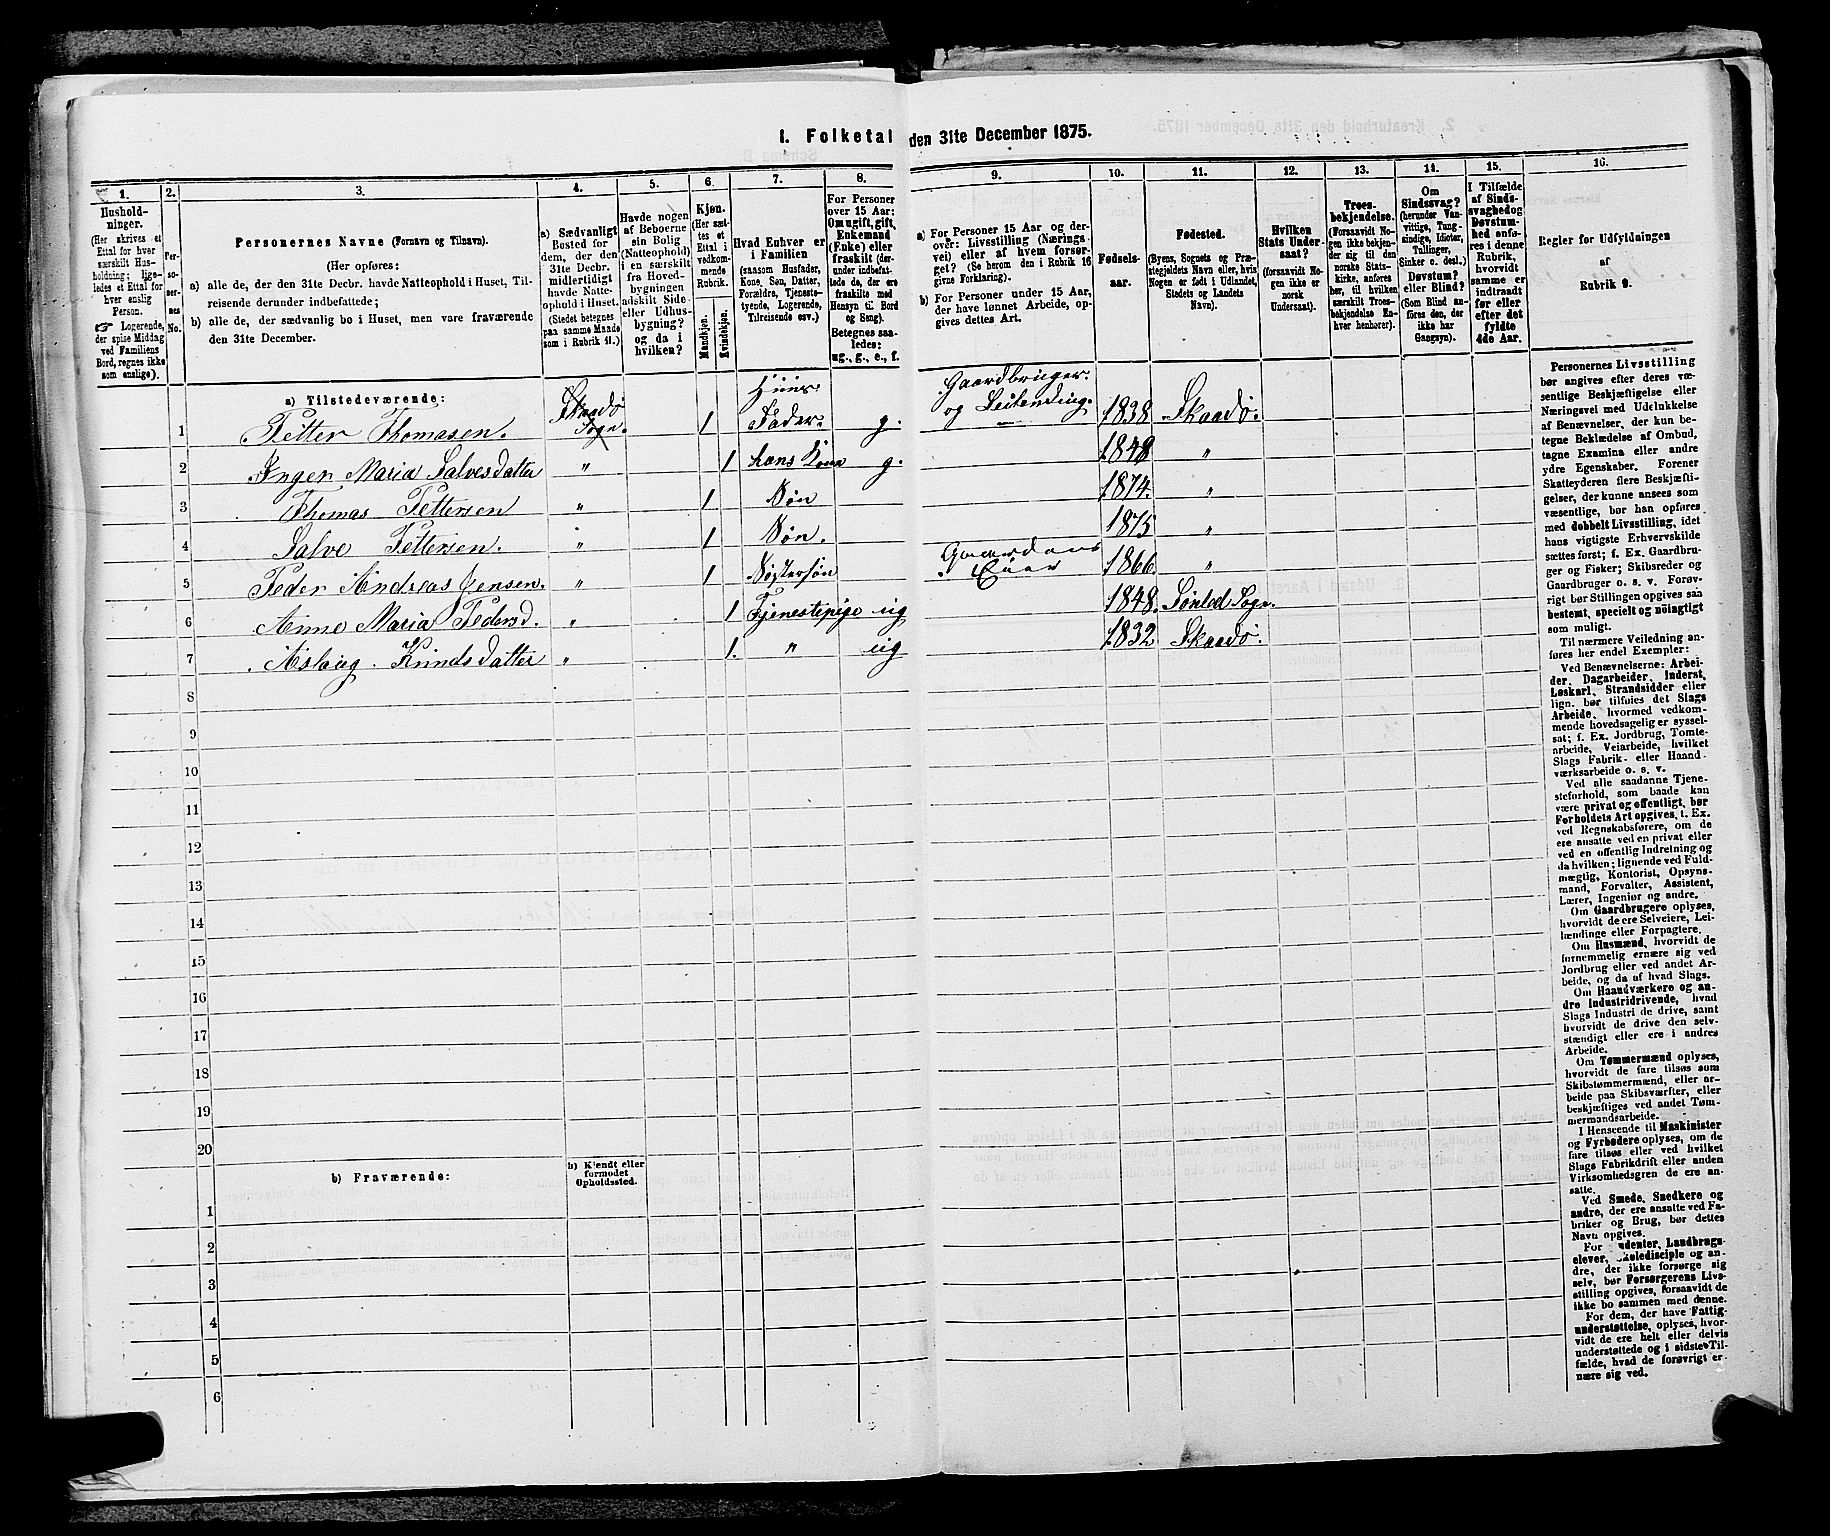 1. Folketal den 31te December 1875.
1.
2.
3.
4.
5.
6.
7.
8.
9.
10.
11.
12.
13.
14.
15.
16.
Hushold-
ninger.
(Her skrives et
Ettal for hver
særskilt Hus-
holdning; lige-
ledes et Ettal for
hver enslig
Person.
☞ Logerende,
der spise Middag
ved Familiens
Bord, regnes ikke
som enslige).
Per-
so-
ner-
nes
No.
Personernes Navne (Fornavn og Tilnavn).
(Her opføres:
a) alle de, der den 31te Decbr. havde Natteophold i Huset, Til-
reisende derunder indbefattede;
b) alle de, der sædvanlig bo i Huset, men vare fraværende
den 31te December.
a) Sædvanligt
Bosted for
dem, der den
31te Decbr.
midlertidigt
havde Natte-
ophold i Huset.
(Stedet betegnes
paa samme Maade
som i Rubrik 11.)
Havde nogen
af Beboerne
sin Bolig
(Natteophold)
i en særskilt
fra Hoved-
bygningen
adskilt Side-
eller Udhus-
bygning?
og da i
hvilken?
Kjøn.
(Her sæt-
tes et
Ettal i
vedkom-
mende
Rubrik.
Mandkjøn.
Kvindekjøn.
Hvad Enhver er
i Familien
(saasom Husfader,
Kone, Søn, Datter,
Forældre, Tjeneste-
tyende, Logerende,
Tilreisende osv.)
For Personer
over 15 Aar:
Om ugift, gift,
Enkemand
(Enke) eller
fraskilt (der-
under indbefat-
tede de, der ere
fraskilte med
Hensyn til Bord
og Seng).
Betegnes saa-
ledes:
ug., g., e., f.
a) For Personer 15 Aar og der-
over: Livsstilling (Nærings-
vei) eller af hvem forsør-
get? (Se herom den i Rubrik 16
givne Forklaring.)
b) For Personer under 15 Aar,
der have lønnet Arbeide, op-
gives dettes Art.
Fødsels-
aar.
Fødested.
(Byens, Sognets og Præ-
stegjeldets Navn eller, hvis
Nogen er født i Udlandet,
Stedets og Landets
Navn).
Hvilken
Stats Under-
saat?
(forsaavidt No-
gen ikke er
norsk
Undersaat).
Troes-
bekjendelse.
(Forsaavidt No-
gen ikke bekjen-
der sig til den
norske Stats-
kirke, anføres
her, til hvilken
særskilt Troes-
bekjendelse En-
hver henhører).
Om
Sindssvag?
(herunder Van-
vittige, Tung-
sindige, Idioter,
Tullinger,
Sinker o. desl.)
Døvstum?
eller Blind?
(Som Blind an-
føres den, der
ikke har
Gangsyn).
I Tilfælde
af Sinds-
svaghed og
Døvstum-
hed anfø-
res i denne
Rubrik,
hvorvidt
samme er
indtraadt
før eller
efter det
fyldte
4de Aar.
Regler for Udfyldningen
af
Rubrik 9.
a) Tilstedeværende:
1 Petter Thomasen. Skaadø Sogn. 1 Huus-Fader. g. Gaardbruger og Leilending. 1838 Skaadø.
2 Inger Maria Salvesdatter " 1 hans Kone g. 1848 "
3 Thomas Pettersen " 1 Søn 1874. "
4 Salve Pettersen. " 1 Søn. 1875 "
5 Peder Andreas Jensen. " 1 Søstersøn Gaardens 1866. "
6 Anne Maria Pedersd. " 1 Tjenestepige ug 1848. Søndled Sogn.
7 Aslaug Knudsdatter " 1. " ug 1832 Skaadø.
8
9
10
11
12
13
14
15
16
17
18
19
20
b) Fraværende:
b) Kjendt eller
formodet
Opholdssted.
1
2
3
4
5
6
Personernes Livsstilling
bør angives efter deres væ-
sentlige Beskjæftigelse eller
Næringsvei med Udelukkelse
af Benævnelser, der kun be-
tegne Beklædelse af Ombud,
tagne Examina eller andre
ydre Egenskaber. Forener
Skatteyderen flere Beskjæfti-
gelser, der kunne ansees som
væsentlige, bør han opføres
med dobbelt Livsstilling, idet
hans vigtigste Erhvervskilde
sættes først; f. Ex. Gaardbru-
ger og Fisker; Skibsreder og
Gaardbruger o. s. v. Forøv-
rigt bør Stillingen opgives saa
bestemt, specielt og nøiagtigt
som muligt.
Til nærmere Veiledning an-
føres her endel Exempler:
Ved Benævnelserne: Arbei-
der, Dagarbeider, Inderst,
Løskarl, Strandsidder eller
lign. bør tilføies det Slags
Arbeide, hvormed vedkom-
mende hovedsagelig er syssel-
sat; f. Ex. Jordbrug, Tomte-
arbeide, Veiarbeide, hvilket
Slags Fabrik- eller Haand-
værksarbeide o. s. v.
Ved alle saadanne Tjene-
steforhold, som baade kan
være privat og offentligt, bør
Forholdets Art opgives, t. Ex.
ved Regnskabsførere, om de
ere ansatte ved en privat eller
ved en offentlig Indretning og
da hvilken; lignende ved Fuld-
mægtig, Kontorist, Opsyns-
mand, Forvalter, Assistent,
Lærer, Ingeniør og andre.
Om Gaardbrugere oplyses,
hvorvidt de ere Selveiere, Lei-
lændinge eller Forpagtere.
Om Husmænd, hvorvidt de
fornemmelig ernære sig ved
Jordbrug eller ved andet Ar-
beide, og da af hvad Slags.
Om Haandværkere og an-
dre Industridrivende, hvad
Slags Industri de drive, samt
hvorvidt de drive den selv-
stændigt eller ere i andres
Arbeide.
Om Tømmermænd oplyses,
hvorvidt de fare tilsøs som
Skibstømmermænd, eller ar-
beide paa Skibsværfter, eller
beskjæftiges ved andet Tøm-
mermandsarbeide.
I Henseende til Maskinister
og Fyrbødere oplyses, om de
fare tilsøs eller ved hvilket
Slags Fabrikdrift eller anden
Virksomhedsgren de ere an-
satte.
Ved Smede, Snedkere og
andre, der ere ansatte ved Fa-
briker og Brug, bør dettes
Navn opgives.
For denter, Landbrugs-
elever, koledisciple og an-
dre, der ikke forsørge sig
selv, bør Forsørgerens Livs-
stilling opgives, forsaavidt de
ikke bo sammen med denne.
For dem, der have Fattig-
understøttelse, oplyses, hvor-
vidt de ere helt eller delvis
understøttede og i sidste Til-
fælde, hvad de forøvrigt er-
nære sig ved.